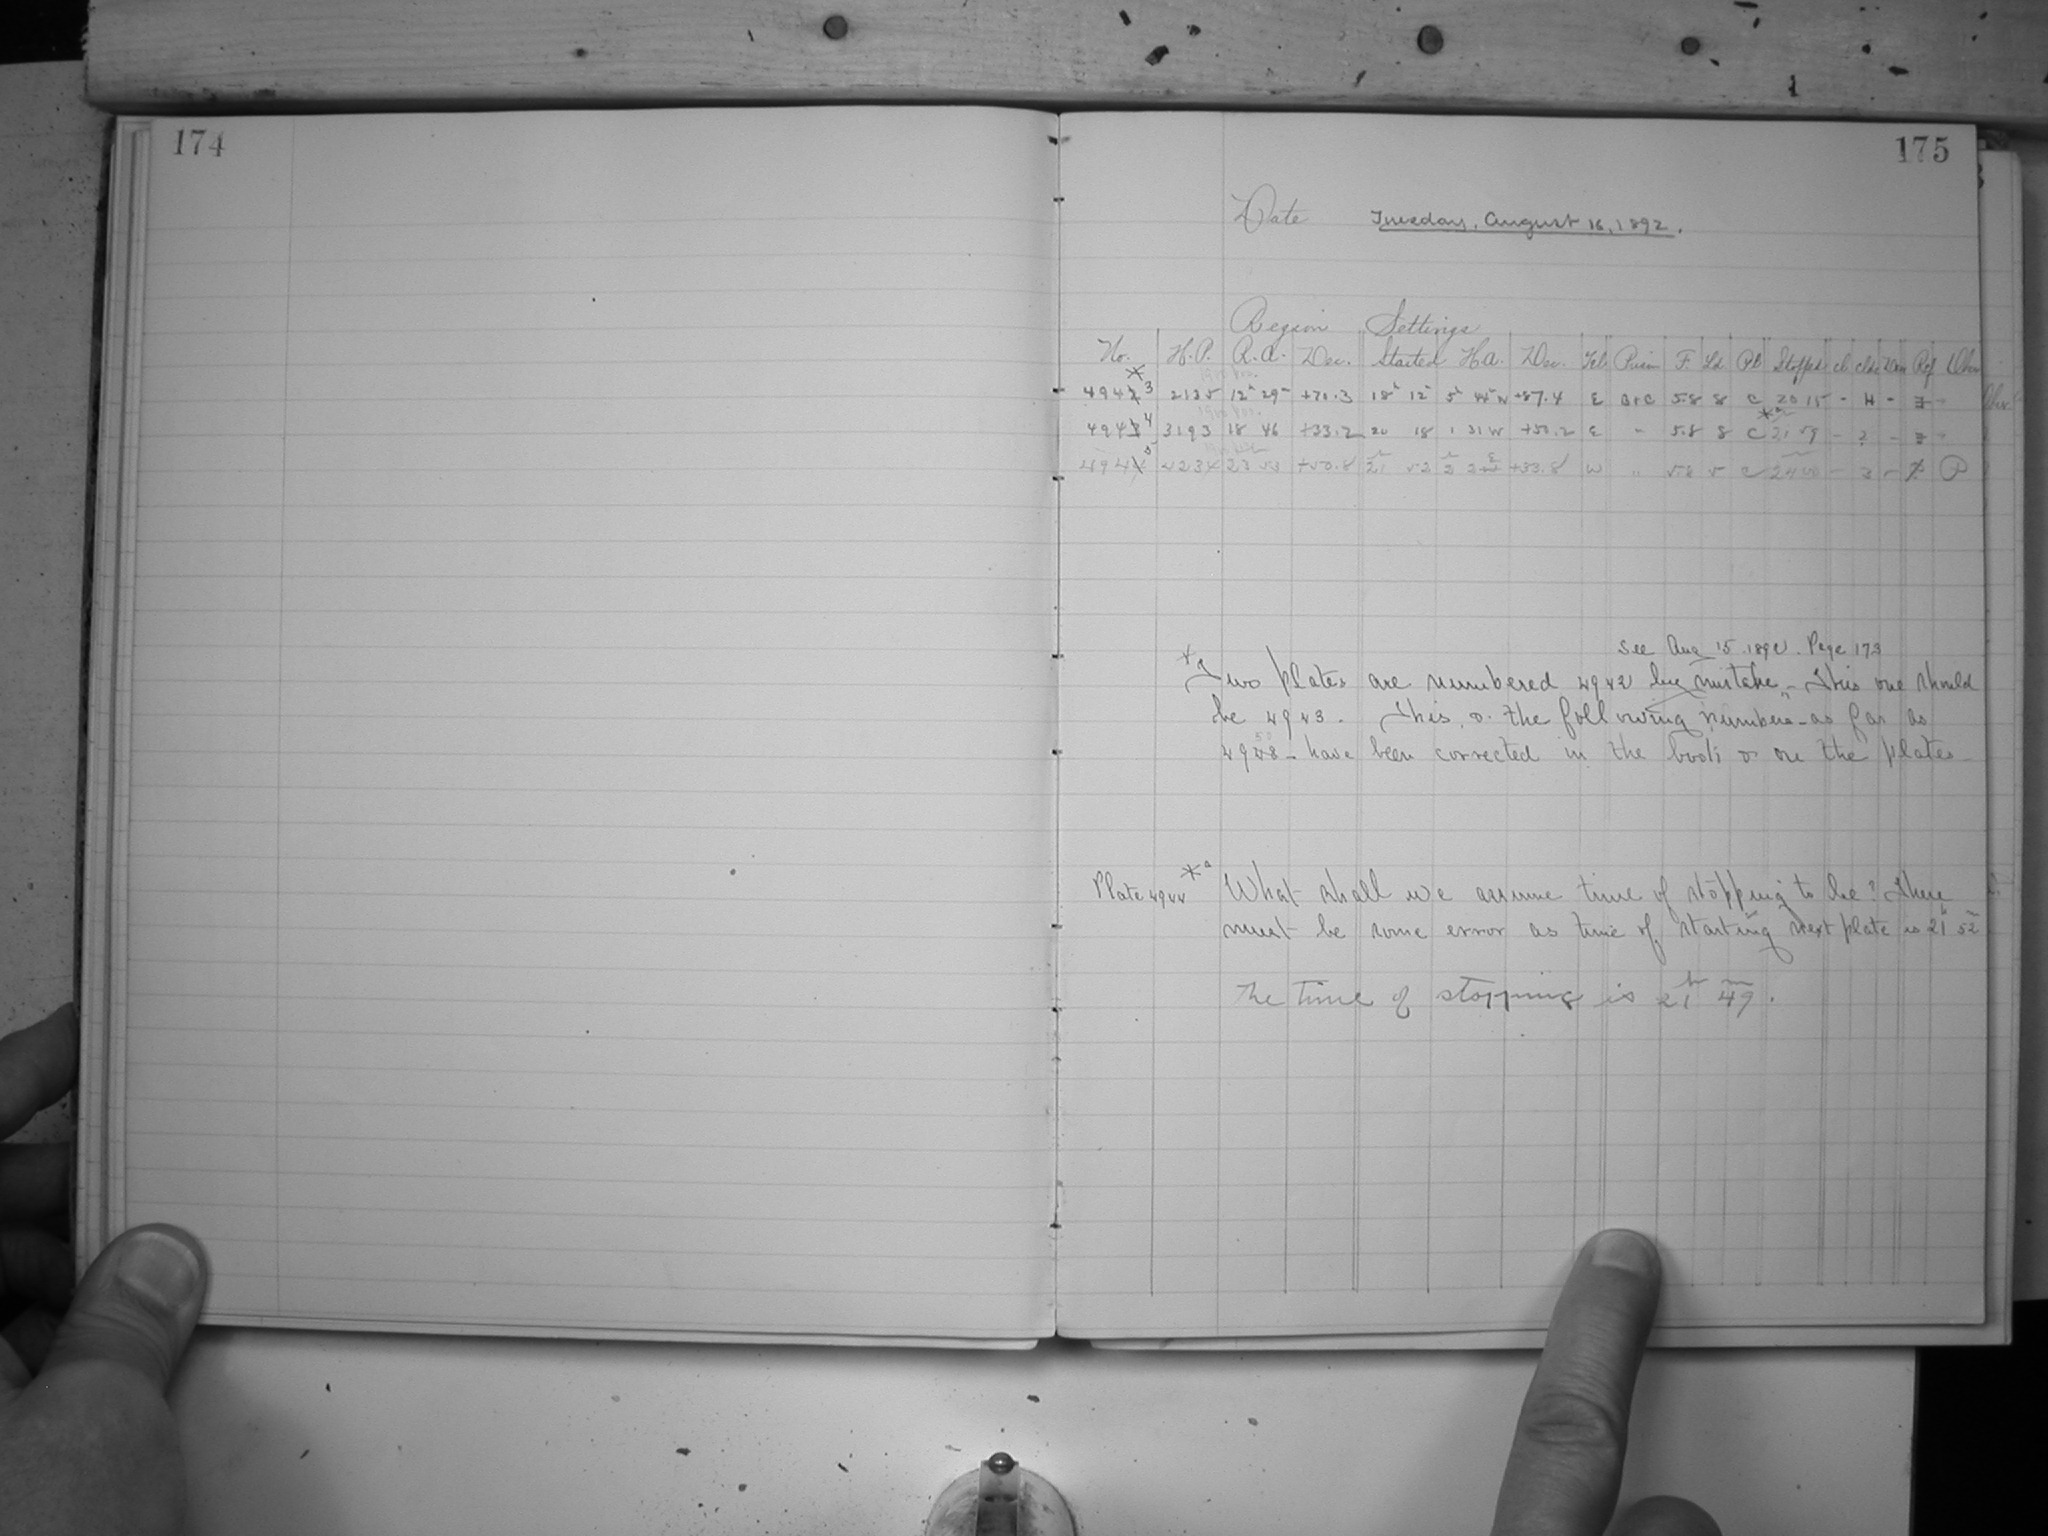 174
175
Date Tuesday, August 16, 1892.
Region Settings
No. H.P. R.A. Dec. Started H.A. Dec. Tel. Prism F. Ld PB Stopped cl clds Ref
* 3
4942 2135 12h 29m +70.3 18h 12m 5h +87.4 E B+C 5.8 8 C 20 15 - H -
4
4943 3193 18 46 +33.2 20 18 1 31W +50.2 E " 5.8 8 C *a 21 59 - 2 -
5
4944 4234 23 53 +50.8 21 52 2 2 E +33.8 W " 5.8 5 C 24 00 - 3 - P
See Aug 15 1892. Page 173
* Two plates are numbered 4942 by mistake - This one should
be 4943. This & the following numbers - as far as
- have been corrected in the book & on the plates -
Plate 4944 *a What shall we assume time of stopping to be? There
must be some error as time of starting next plate is 21h 52m
The time of stopping is 21h 49m.